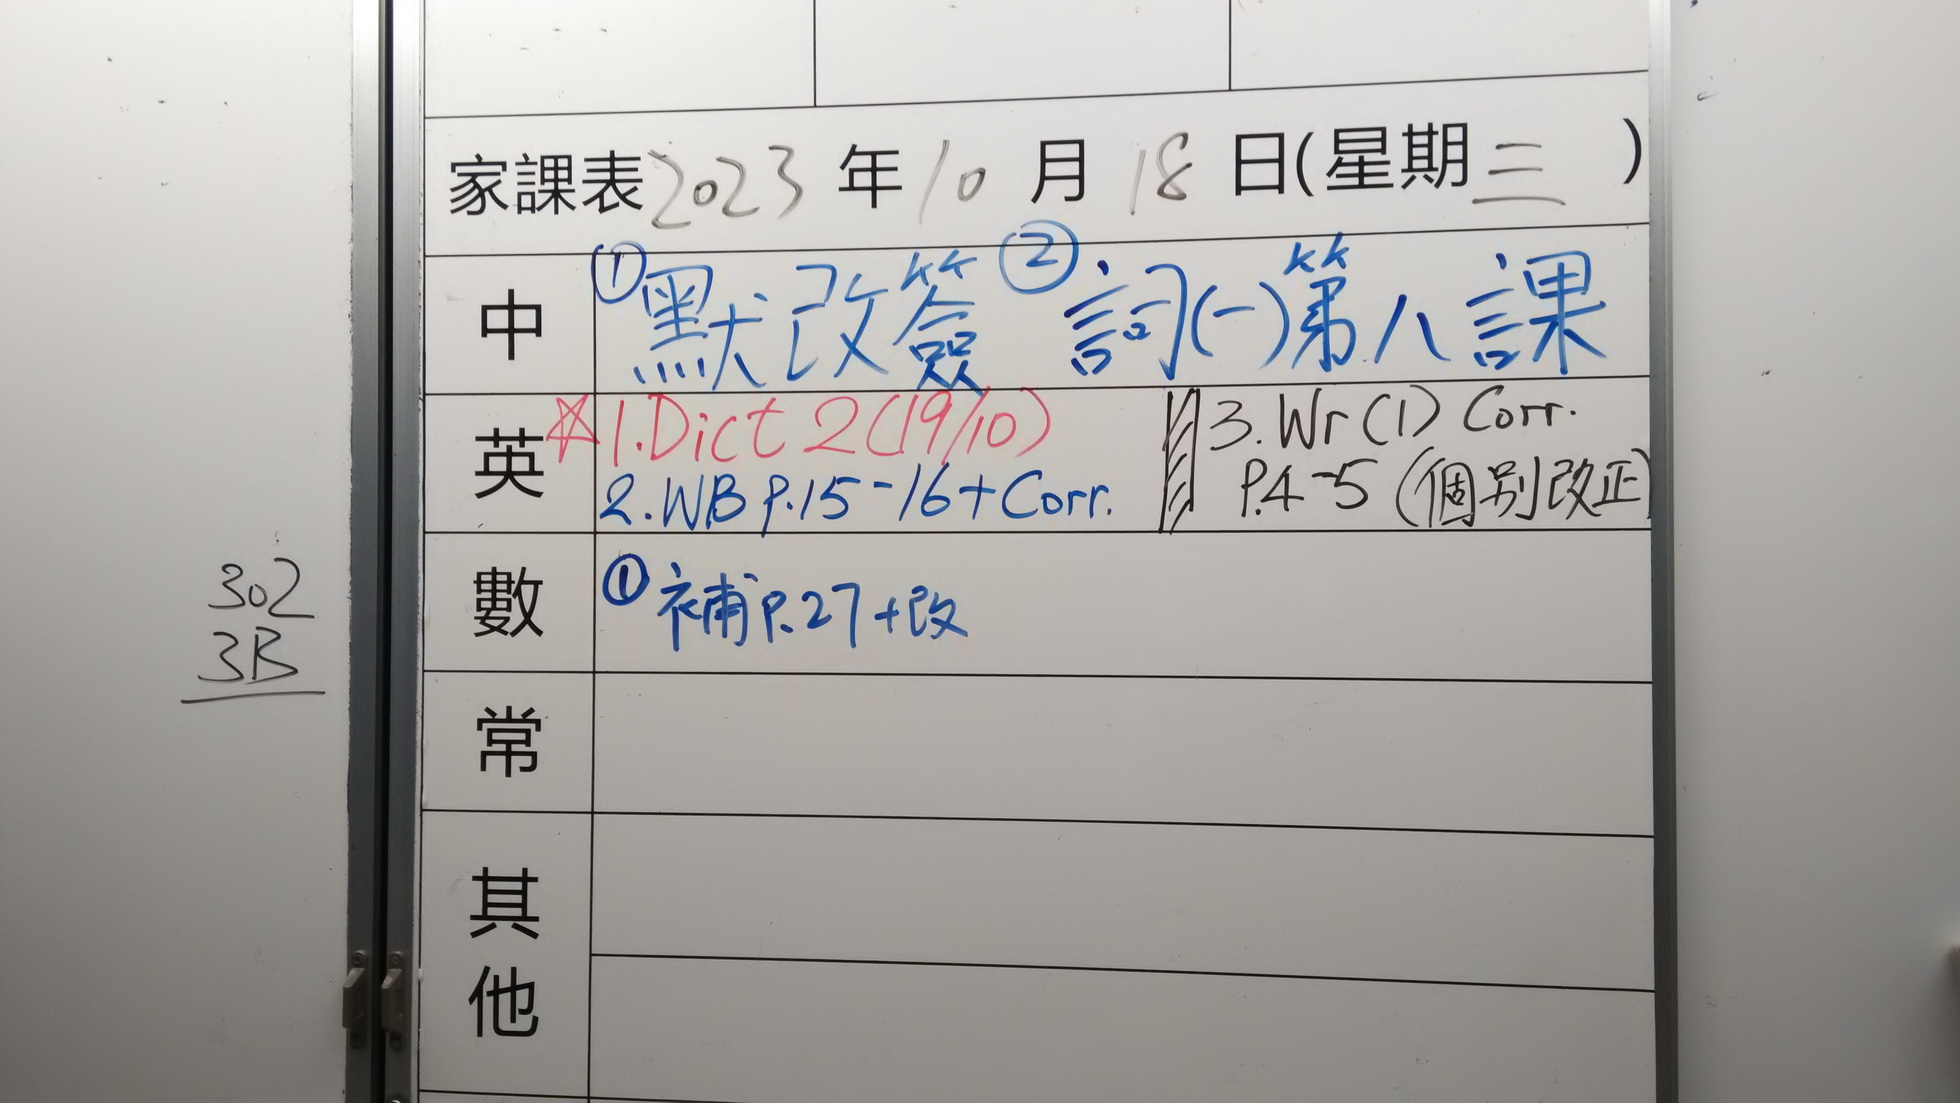 家課表 2023 年 10 月 18 日(星期三)
中 ①默改簽 ②詞(一)第八課
英 ☆1.Dict 2(19/10)
2.WB P.15-16+Corr.
3.Wr(1) Corr.
P.4-5 (個別改正)
數 ①補P.27+改
常
其他
302
3B